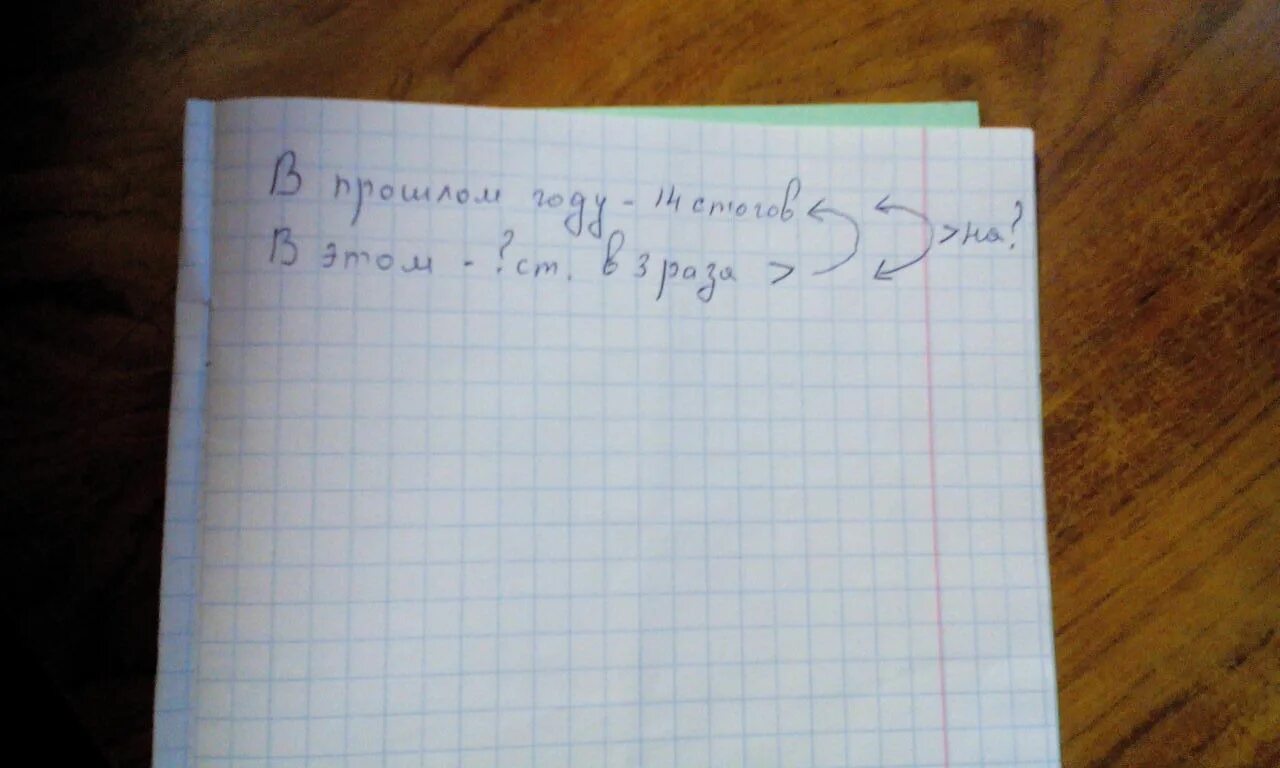 В прошлом году - 14 стогов
В этом - ? ст. в 3 раза > > на?